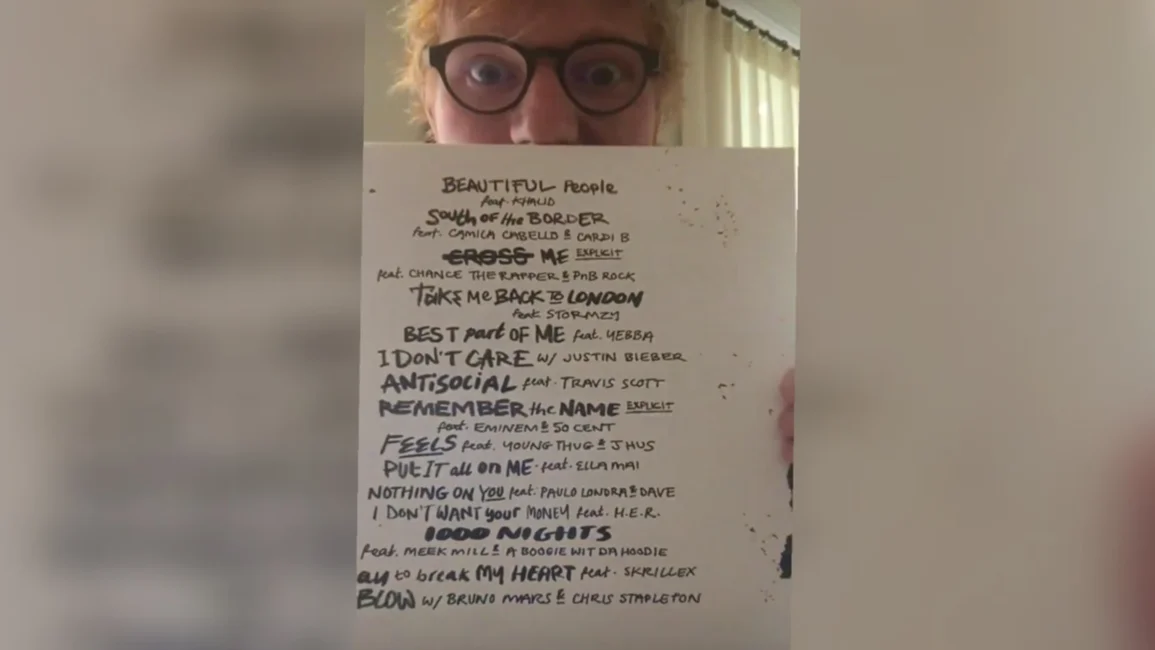 BEAUTIFUL People
feat. KHALID
South OF the BORDER
feat. CAMILA CABELLO & CARDI B
CROSS ME EXPLICIT
feat. CHANCE THE RAPPER & PnB ROCK
TAKE Me BACK TO LONDON
feat STORMZY
BEST part OF ME feat. YEBBA
I DON'T CARE w/ JUSTIN BIEBER
ANTiSOCiAL feat. TRAVIS SCOTT
REMEMBER the NAME EXPLICIT
feat. EMINEM & 50 CENT
FEELS feat. YOUNG THUG & J HUS
PUT IT all on ME feat. ELLA MAI
NOTHING ON YOU feat. PAULO LONDRA & DAVE
I DON'T WANT your MONEY feat. H.E.R.
1000 NIGHTS
feat. MEEK MILL & A BOOGIE WIT DA HOODIE
ay to break MY HEART feat. SKRILLEX
BLOW w/ BRUNO MARS & CHRIS STAPLETON